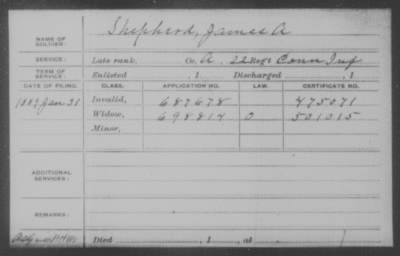 NAME OF SOLDIER: Shepherd, James A
SERVICE: Late rank, Co. A, 22 Reg't Conn Inf
TERM OF SERVICE: Enlisted , 1 Discharged , 1
DATE OF FILING. CLASS. APPLICATION NO. LAW. CERTIFICATE NO.
1889 Jan 31 Invalid, 687678 475071
Widow, 698814 O 501015
Minor,
ADDITIONAL SERVICES:
REMARKS:
Died , 1 , at